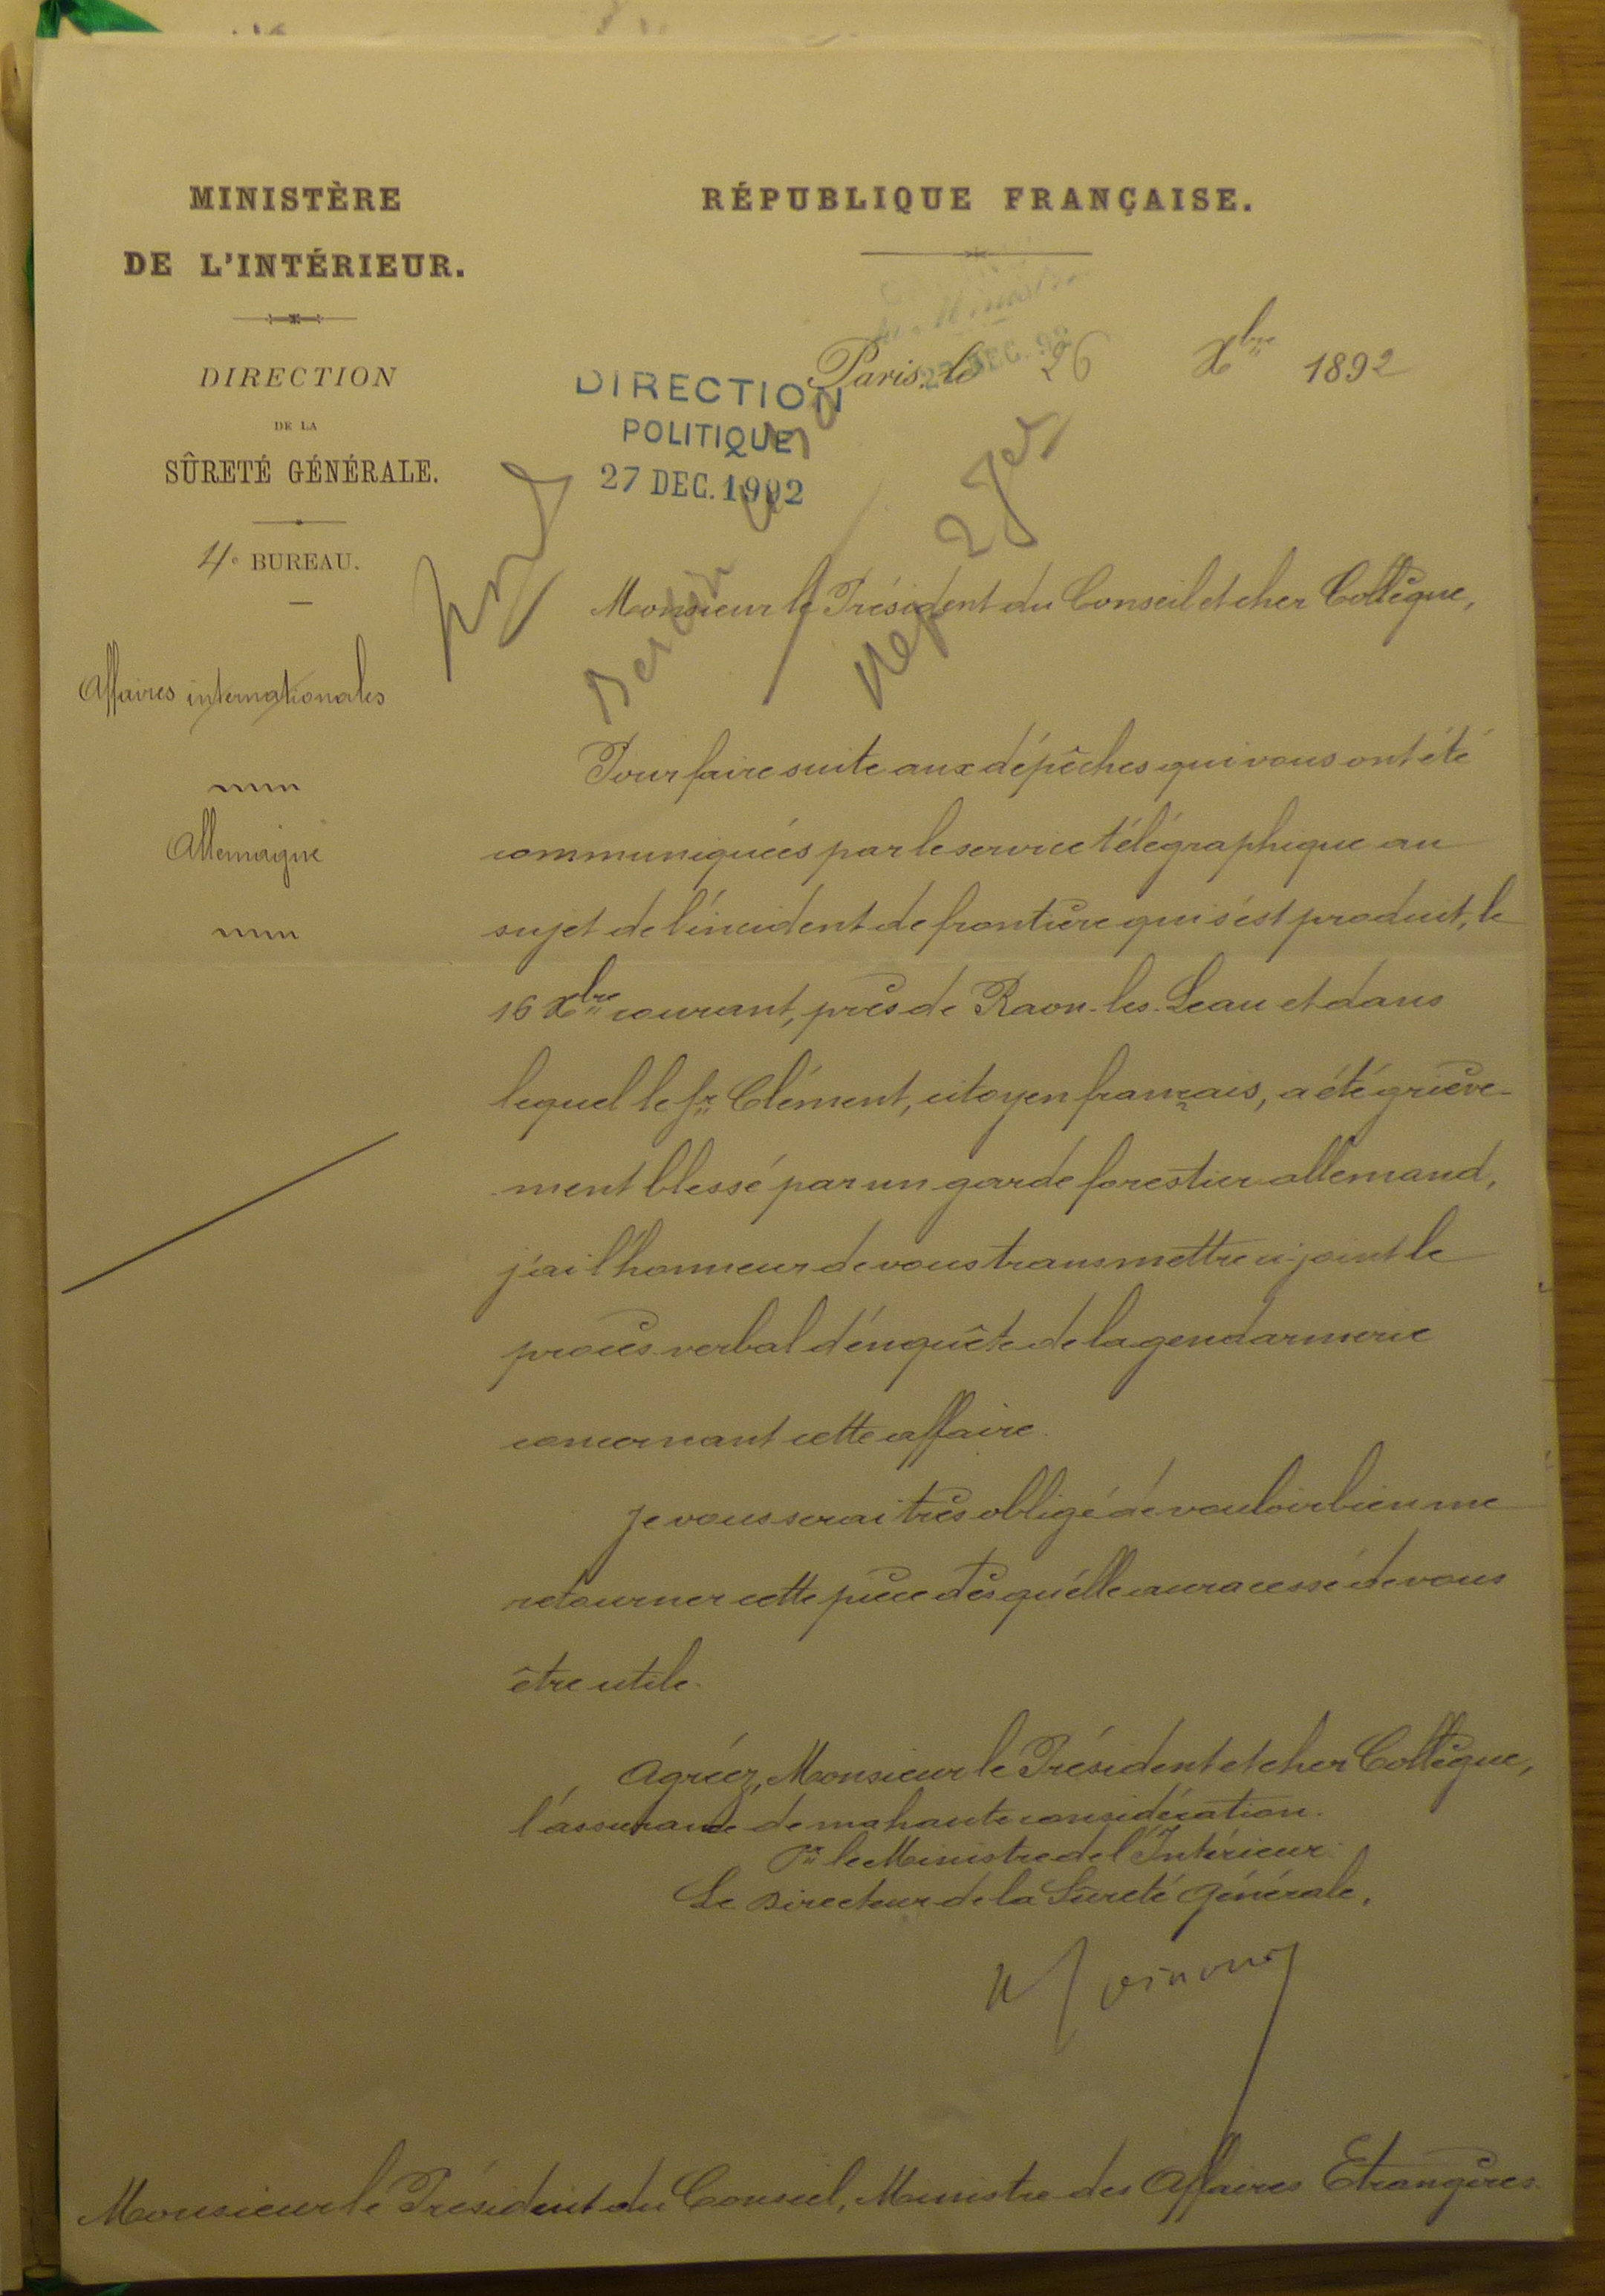 MINISTÈRE
DE L'INTÉRIEUR.
DIRECTION
DE LA
SÛRETÉ GÉNÉRALE.
4e BUREAU.
Affaires internationales
Allemagne
RÉPUBLIQUE FRANÇAISE.
Paris, le 26 Xbre 1892
DIRECTION
POLITIQUE
27 DEC. 1892
Berlin
Rép 2 Jer
Monsieur le Président du Conseil et cher Collègue,
Pour faire suite aux dépêches qui vous ont été
communiquées par le service télégraphique au
sujet de l'incident de frontière qui s'est produit, le
16 Xbre courant, près de Raon-les-Leau et dans
lequel le Sr Clément, citoyen français, a été griève-
ment blessé par un garde forestier allemand,
j'ai l'honneur de vous transmettre ci-joint le
procès verbal d'enquête de la gendarmerie
concernant cette affaire.
Je vous serai très obligé de vouloir bien me
retourner cette pièce dès qu'elle aura cessé de vous
être utile.
Agréez, Monsieur le Président et cher Collègue,
l'assurance de ma haute considération.
Pr le Ministre de l'Intérieur:
Le Directeur de la Sûreté Générale,
Monsieur le Président du Conseil, Ministre des Affaires Etrangères.